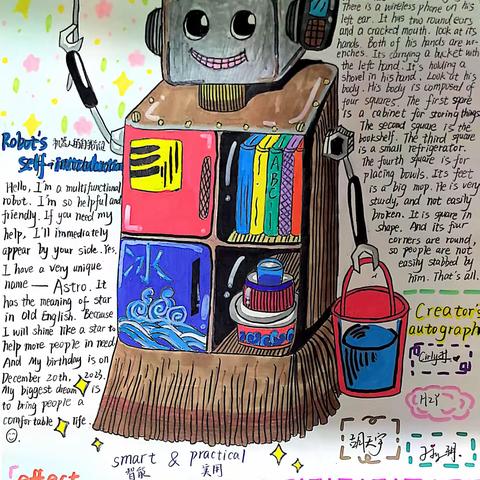 Robot's
self-introduction
Hello, I'm a multifunctional
robot. I'm so helpful and
friendly. If you need my
help, I'll immediately
appear by your side. Yes,
I have a very unique
name — Astro. It
has the meaning of star
in old English. Because
I will shine like a star to
help more people in need.
And My birthday is on
December 20th, 2023.
My biggest dream is
to bring people a
comfortable life.
There is a wireless phone on his
left ear. It has two round ears
and a cracked mouth. look at its
hands. Both of his hands are wr-
enches. Its carrying a bucket with
the left hand. It's holding a
shovel in his hand. Look at his
body. His body is composed of
four squares. The first square
is a cabinet for storing things.
The second square is the
bookshelf. The third square
is a small refrigerator.
The fourth square is for
placing bowls. Its feet
is a big mop. He is very
study, and not easily
broken. It is square in
shape. And its four
corners are round,
so people are not
easily stabbed by
him. That's all.
ABC
冰
Creator's
autograph
smart & practical
智能 实用
effect